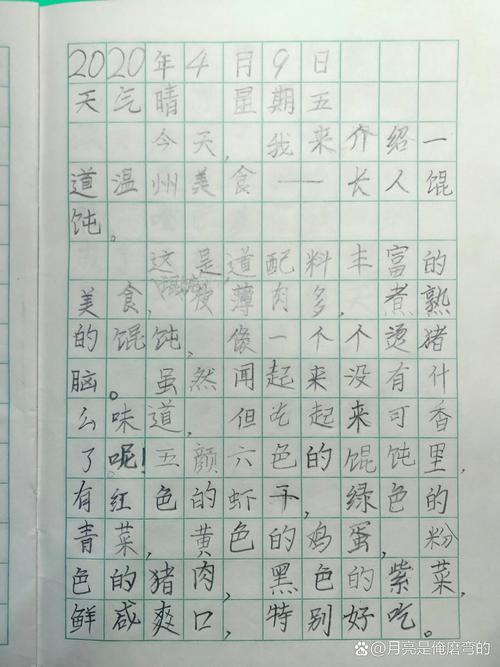 2020年4月9日
天气晴 星期五
今天,我来介绍一
道温州美食——长人馄
饨。
这是道配料丰富的
美食,馄饨皮薄肉多,煮熟
的馄饨,像一个个烫猪
脑。虽然闻起来没有什
么味道,但吃起来可香
了呢!五颜六色的馄饨里,
有红色的虾干,绿色的
青菜,黄色的鸡蛋,粉
色的猪肉,黑色的紫菜,
鲜咸爽口,特别好吃。
@月亮是俺磨弯的